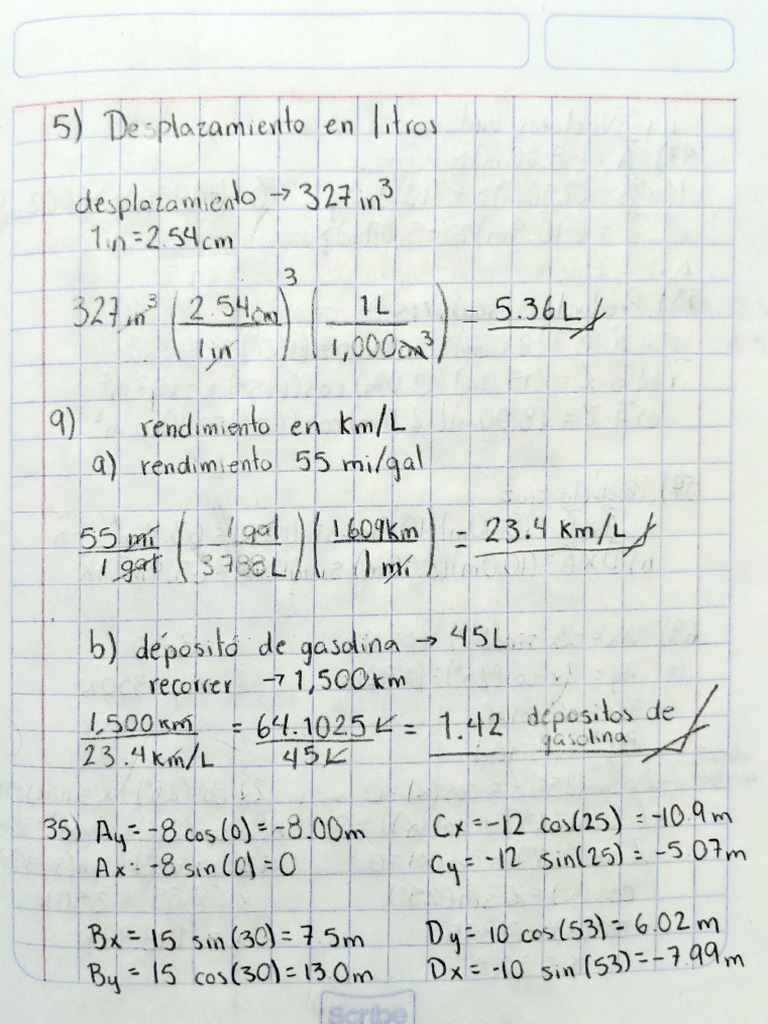 5) Desplazamiento en litros
desplazamiento → 327 in³
1in = 2.54 cm
327 in³ (2.54cm / 1in)³ (1L / 1,000cm³) = 5.36L
9) rendimiento en km/L
a) rendimiento 55 mi/gal
55 mi / 1 gal (1 gal / 3.788L) (1.609km / 1 mi) = 23.4 km/L
b) déposito de gasolina → 45L
recorrer → 1,500km
1,500km / 23.4km/L = 64.1025L / 45L = 1.42 dépositos de gasolina
35) Ay = -8 cos(0) = -8.00m
Ax = -8 sin(0) = 0
Bx = 15 sin(30) = 7.5m
By = 15 cos(30) = 13.0m
Cx = -12 cos(25) = -10.9m
Cy = -12 sin(25) = -5.07m
Dy = 10 cos(53) = 6.02m
Dx = -10 sin(53) = -7.99m
Scribe